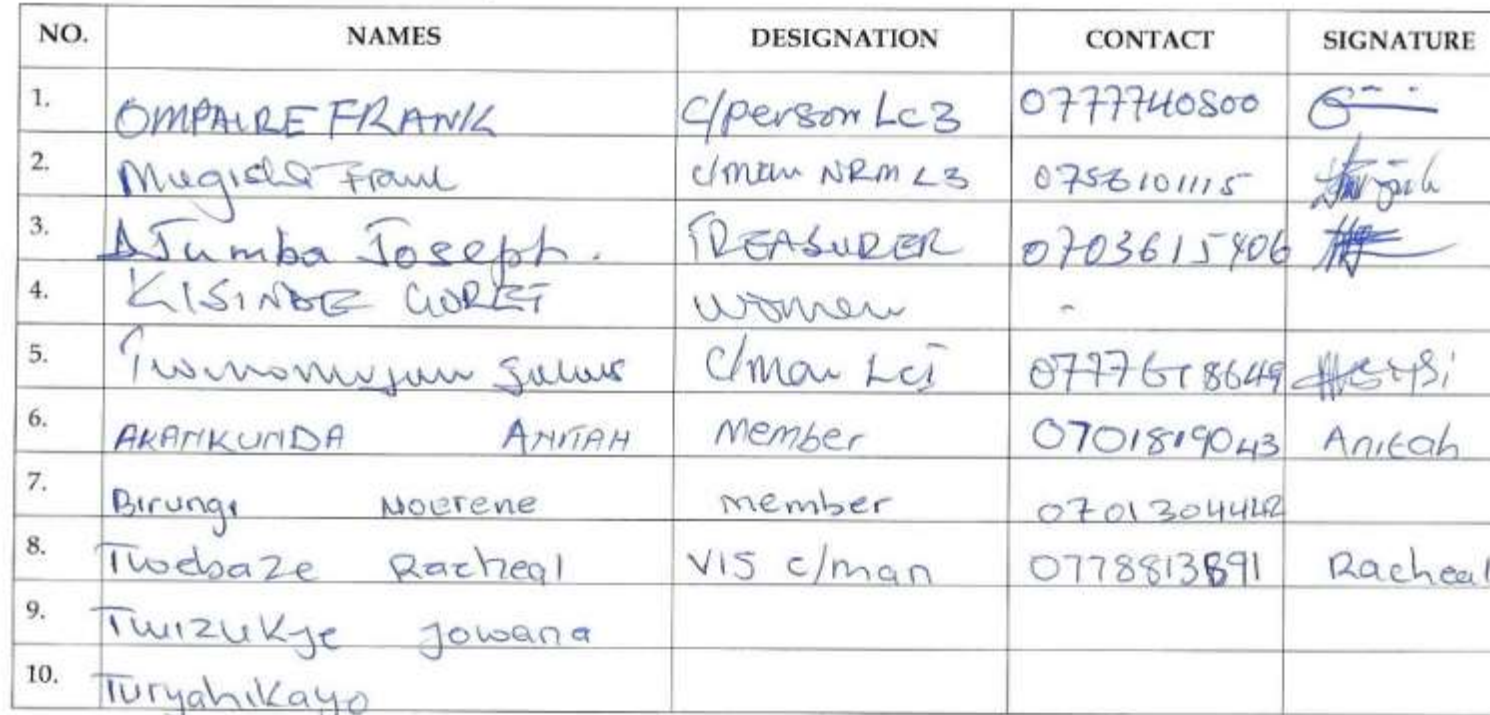 NO. NAMES DESIGNATION CONTACT SIGNATURE
1. OMPAIRE FRANK C/person Lc3 0777740800
2. Mugisha Frank c/man NRM L3
3. AJumba Joseph. TREASURER 0703615406
4. KISINDE GORET women -
5. C/man Lc1
6. AKANKUNDA ANITAH Member 0701819043 Anitah
7. Birungi Noerene member 0701304442
8. Twebaze Racheal VIS c/man 0778813891 Racheal
9. Twizukye Jowana
10. Turyahikayo